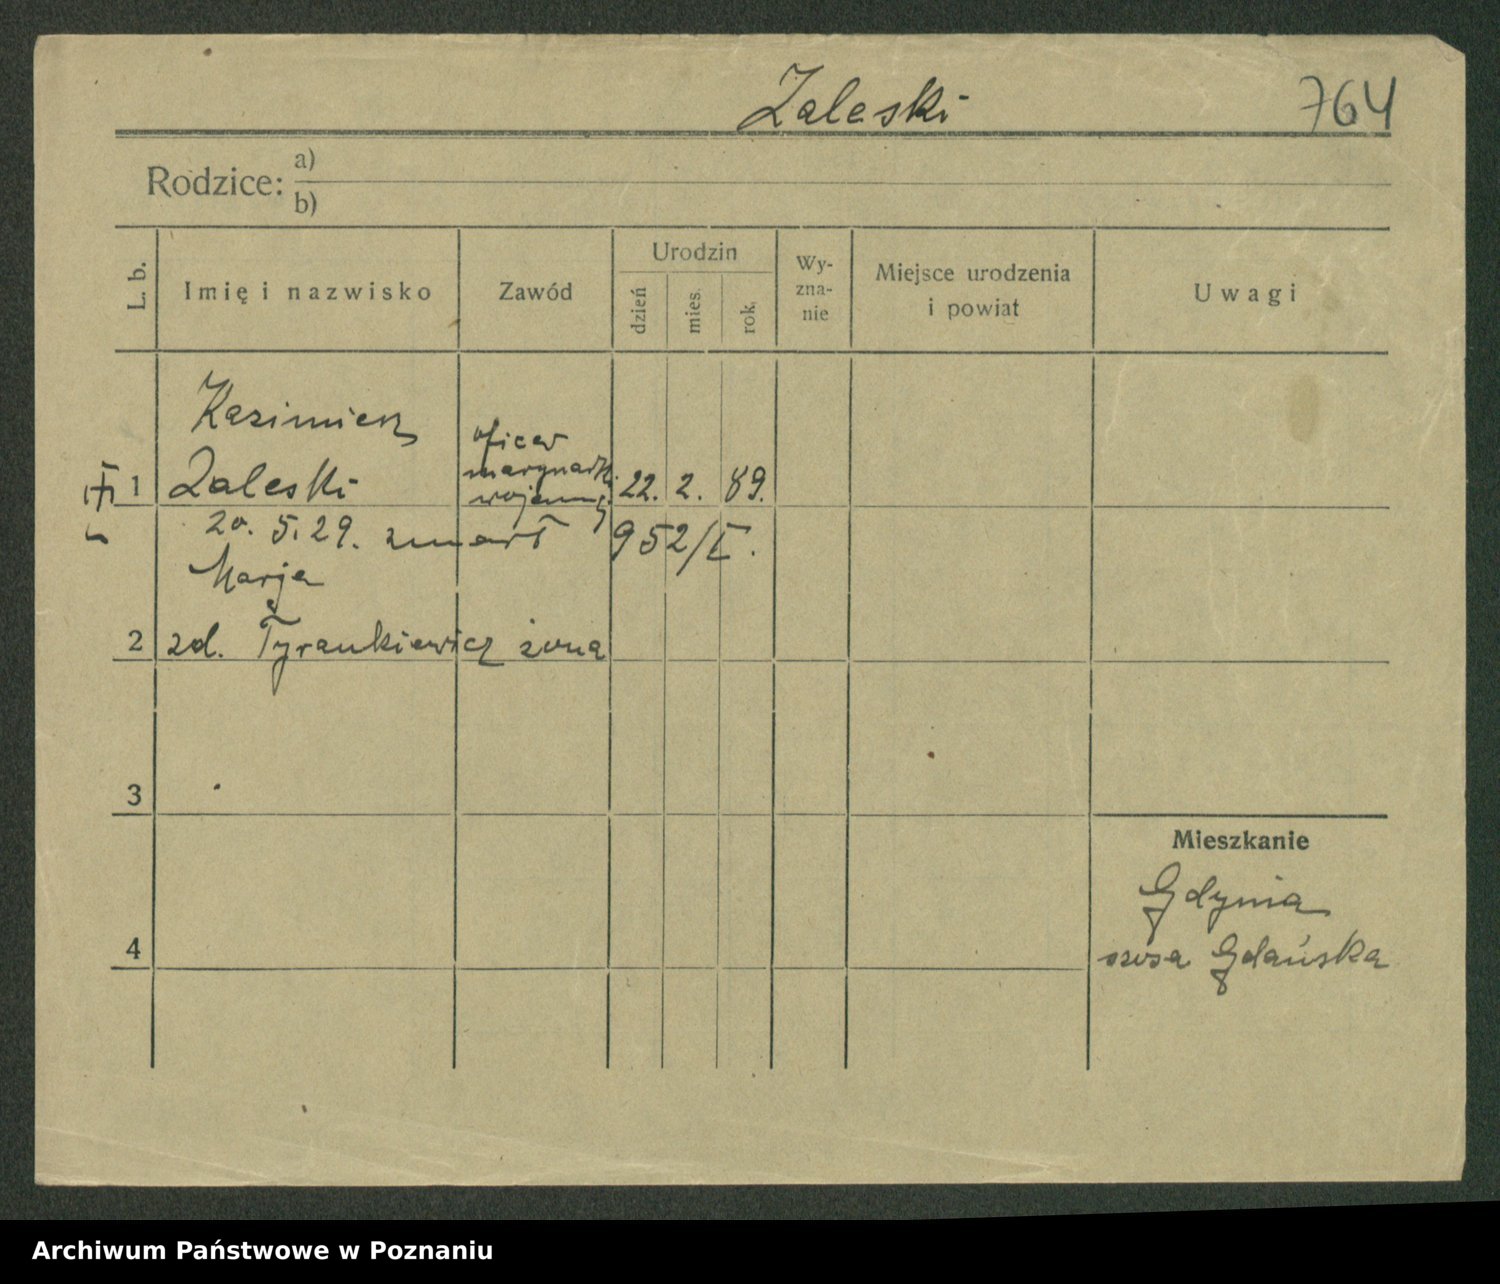 Zaleski 764
Rodzice: a)
b)
L. b. Imię i nazwisko Zawód Urodzin dzień mies. rok. Wy-zna-nie Miejsce urodzenia i powiat Uwagi
Kazimierz
oficer
marynarki
1 Zaleski wojennej 22. 2. 89.
20. 5. 29. zmarł 952/I.
Marja
2 zd. Tyrankiewicz żona
3
Mieszkanie
Gdynia
4
szosa Gdańska
Archiwum Państwowe w Poznaniu